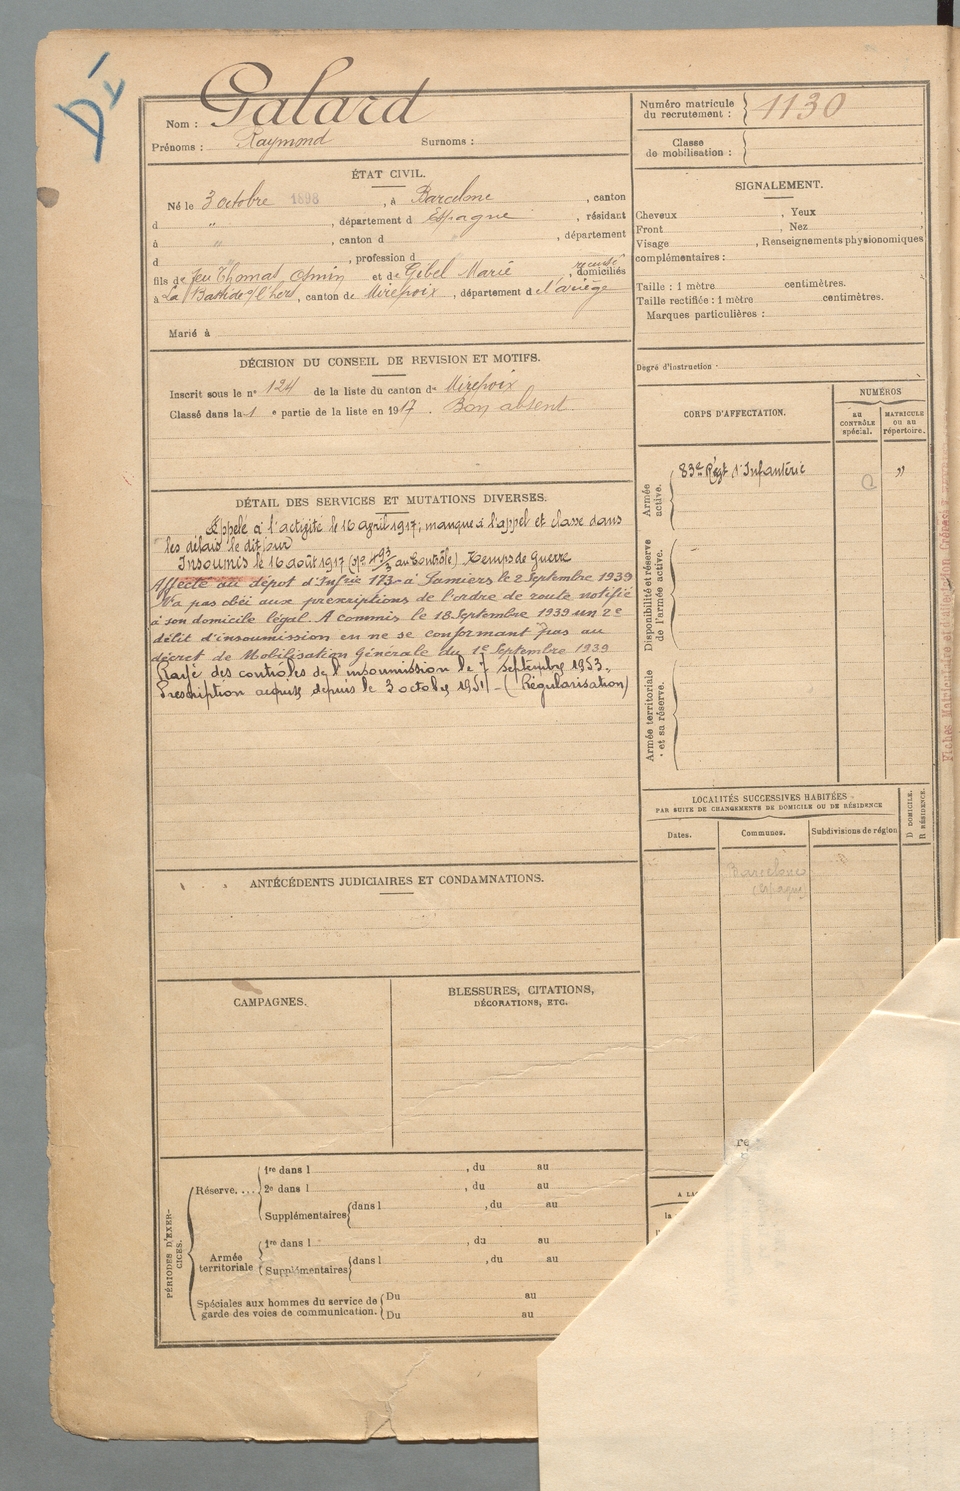 Dx
Galard
Nom :
Prénoms : Raymond Surnoms :
Numéro matricule du recrutement : 1130
Classe de mobilisation :
ÉTAT CIVIL.
Né le 3 octobre 1898, à Barcelone, canton
d „ , département d Espagne, résidant
à „ , canton d „ , département
d „ , profession d
fils de feu Thomas Osmin et de Gibel Marie , domiciliés
à La Bastide s/ l'hers, canton de Mirepoix, département d l'ariège
Marié à
SIGNALEMENT.
Cheveux , Yeux ,
Front , Nez ,
Visage , Renseignements physionomiques
complémentaires :
Taille : 1 mètre centimètres.
Taille rectifiée : 1 mètre centimètres.
Marques particulières :
Degré d'instruction .
DÉCISION DU CONSEIL DE REVISION ET MOTIFS.
Inscrit sous le nº 124 de la liste du canton de Mirepoix
Classé dans la 1 e partie de la liste en 1917. Bon absent
DÉTAIL DES SERVICES ET MUTATIONS DIVERSES.
Appelé à l'activité le 16 avril 1917; manque à l'appel et classé dans
les délais le dit jour
Insoumis le 16 août 1917 (nº au Contrôle) Temps de Guerre
Affecté au dépot d'Infrie 173 à Pamiers le 2 Septembre 1939
N'a pas obéi aux prescriptions de l'ordre de route notifié
à son domicile légal. A commis le 18 Septembre 1939 un 2e
délit d'insoumission en ne se conformant pas au
décret de Mobilisation Générale du 1er Septembre 1939
Rayé des contrôles de l'insoumission le 7 septembre 1953.
Prescription acquise depuis le 3 octobre 1951 - (Régularisation)
CORPS D'AFFECTATION.
NUMÉROS
au CONTRÔLE spécial.
MATRICULE ou au répertoire.
Armée active.
83e Régt d'Infanterie „
Disponibilité et réserve de l'armée active.
Armée territoriale et sa réserve.
LOCALITÉS SUCCESSIVES HABITÉES
PAR SUITE DE CHANGEMENTS DE DOMICILE OU DE RÉSIDENCE
Dates. Communes. Subdivisions de région
D DOMICILE.
R RÉSIDENCE.
Barcelone
(Espagne
ANTÉCÉDENTS JUDICIAIRES ET CONDAMNATIONS.
CAMPAGNES.
BLESSURES, CITATIONS,
DÉCORATIONS, ETC.
PÉRIODES D'EXERCICES.
Réserve....
1re dans l , du au
2e dans l , du au
Supplémentaires dans l , du au
Armée territoriale
1re dans l , du au
Supplémentaires dans l , du au
Spéciales aux hommes du service de garde des voies de communication.
Du au
Du au
re
A LA
la
Fiches Matriculaire et d'affectation